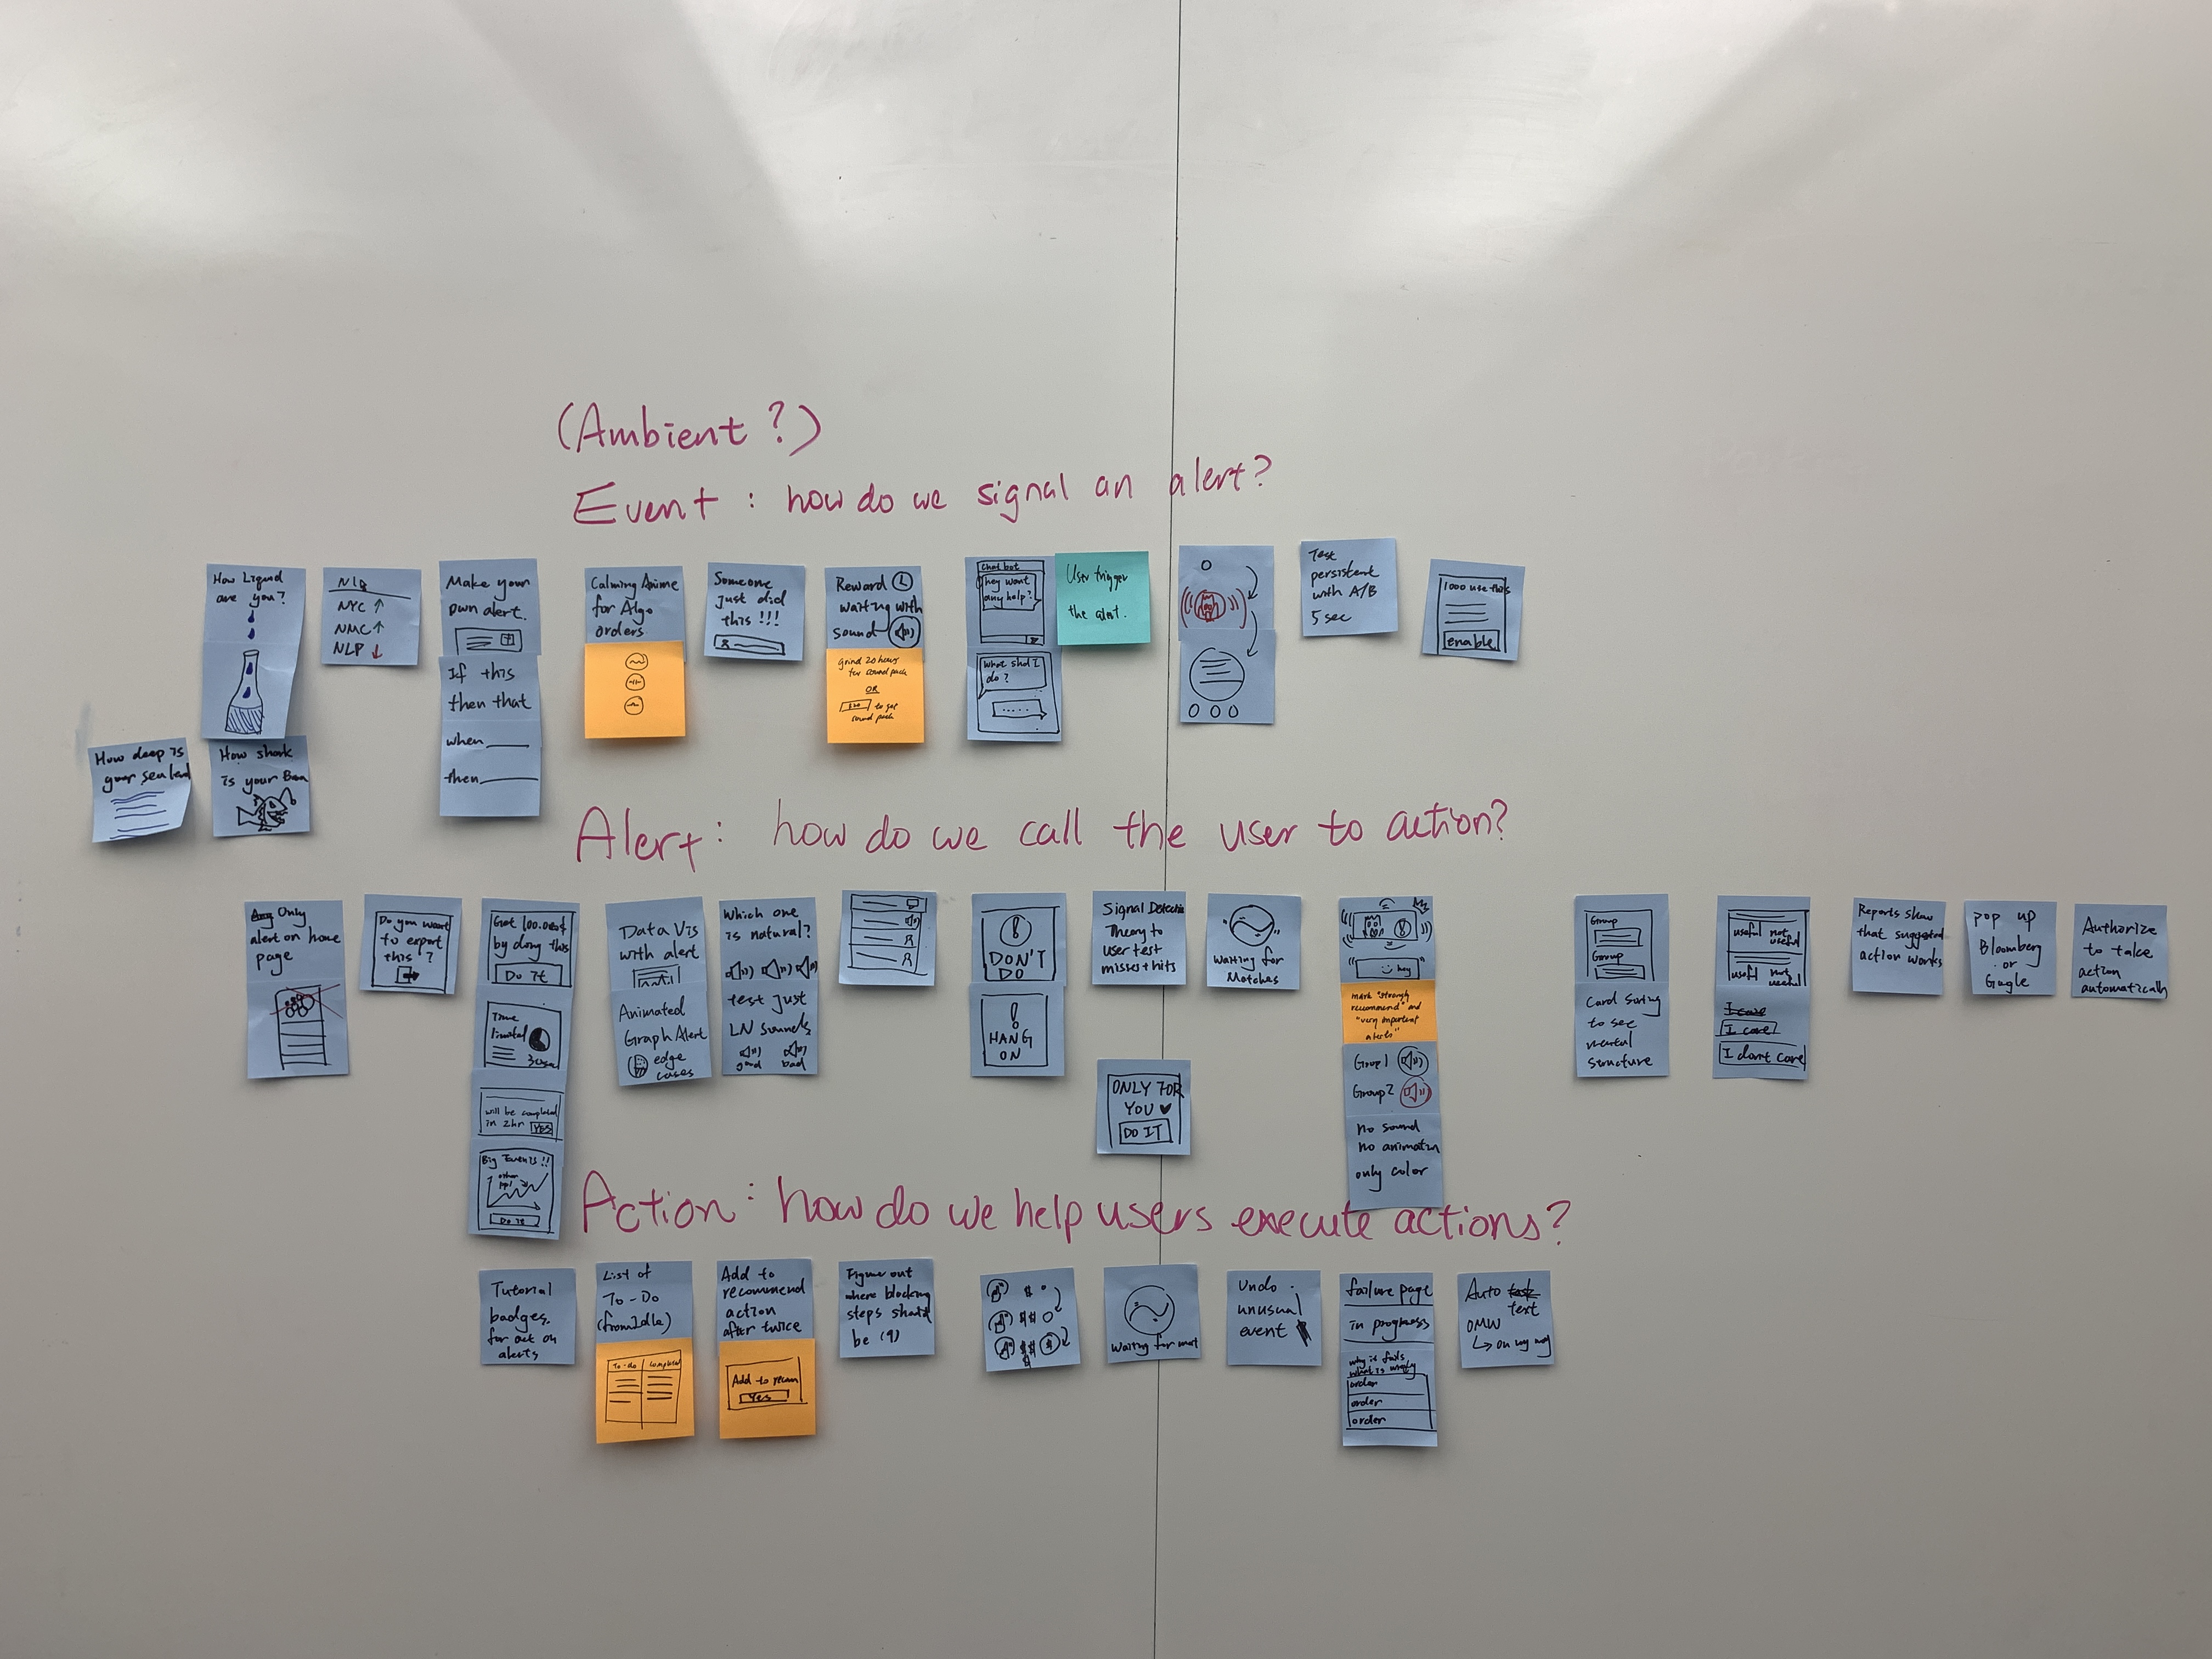 (Ambient?)
Event: how do we signal an alert?
How Liquid
are you?
NYC ↑
NMC ↑
NLP ↓
Make your
own alert.
If this
then that
when
then
Calming Anime
for Algo
orders
Someone
just did
this !!!
Reward
waiting with
sound
grind 20 hours
for sound pack
OR
to get
sound pack
Chat bot
hey want
any help?
What shd I
do?
User trigger
the alert.
Test
persistent
with A/B
5 sec
1000 use this
enable
How deep is
your
How shark
is your
Alert: how do we call the user to action?
Only
alert on home
page
Do you want
to export
this?
Get 100.000$
by doing this
Do It
Time
limited
will be completed
in 2hr YES
Big Events!!
other
ppl
Do It
Data Vis
with alert
Animated
Graph Alert
edge
cases
Which one
is natural?
test just
LN sounds
good bad
!
DON'T
DO
!
HANG
ON
Signal Detection
Theory to
user test
misses + hits
ONLY FOR
YOU ♥
DO IT
Waiting for
Matches
hey
mark "strongly
recommend" and
"very important
alerts"
Group 1
Group 2
no sound
no animation
only color
Group
Group
Card Sorting
to see
mental
structure
useful not
useful
useful not
useful
I care
I care
I dont care
Reports show
that suggested
action works
pop up
Bloomberg
or
Gogle
Authorize
to take
action
automatically
Action: how do we help users execute actions?
Tutorial
badges.
for act on
alerts
List of
To-Do
(from Idle)
To-do Completed
Add to
recommend
action
after twice
Add to recom
Yes
Figure out
where blocking
steps should
be (9)
$
$$
$$
Waiting for
Undo
unusual
event
failure page
in progress
why it fails
what is
order
order
order
Auto task
text
OMW
↳ on my way